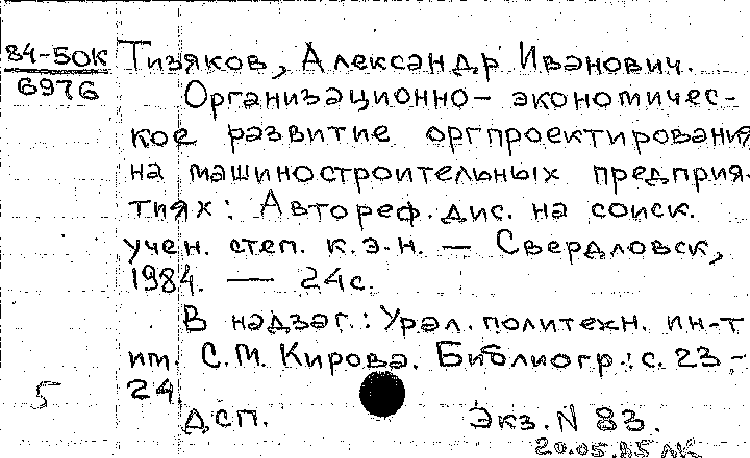 84-50К
6976
Тизяков, Александр Иванович.
Организационно- экономичес-
кое развитие оргпроектирования
на машиностроительных предприя-
тиях: Автореф. дис. на соиск.
учен. степ. к.э.н. — Свердловск,
1984. — 24с.
В надзаг.: Урал. политехн. ин-т
им. С.М. Кирова. Библиогр.: с. 23-
24
5
ДСП. Экз. N 83.
20.05.85